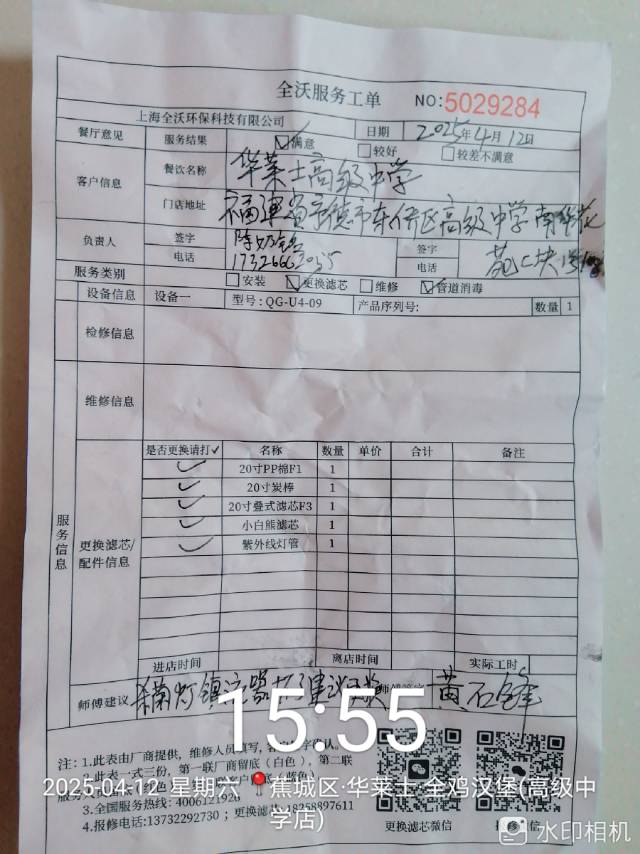 全沃服务工单 NO:5029284
上海全沃环保科技有限公司 日期 2025年4月12日
餐厅意见 服务结果 满意 较好 较差不满意
客户信息 餐饮名称 华莱士高级中学
门店地址 福建省宁德市东侨区高级中学南华花
苑
负责人 签字 签字
电话 17326663055 电话
服务类别 安装 更换滤芯 维修 管道消毒
设备信息 设备一 型号:QG-U4-09 产品序列号: 数量 1
检修信息
维修信息
服务信息
更换滤芯/配件信息
是否更换请打✓ 名称 数量 单价 合计 备注
✓ 20寸PP棉F1 1
✓ 20寸炭棒 1
✓ 20寸叠式滤芯F3 1
✓ 小白熊滤芯 1
✓ 紫外线灯管 1
进店时间 离店时间 实际工时
师傅建议 杀菌灯镇流器坏了建议更换 黄石锋
15:55
注:1.此表由厂商提供,维修人员填写,
2.此表一式三份,第一联厂商留底(白色),第二联
3.全国服务热线:4006121928
4.报修电话:13732292730;更换滤芯:18258897611
更换滤芯微信
2025-04-12 星期六 蕉城区·华莱士·全鸡汉堡(高级中
学店)
水印相机